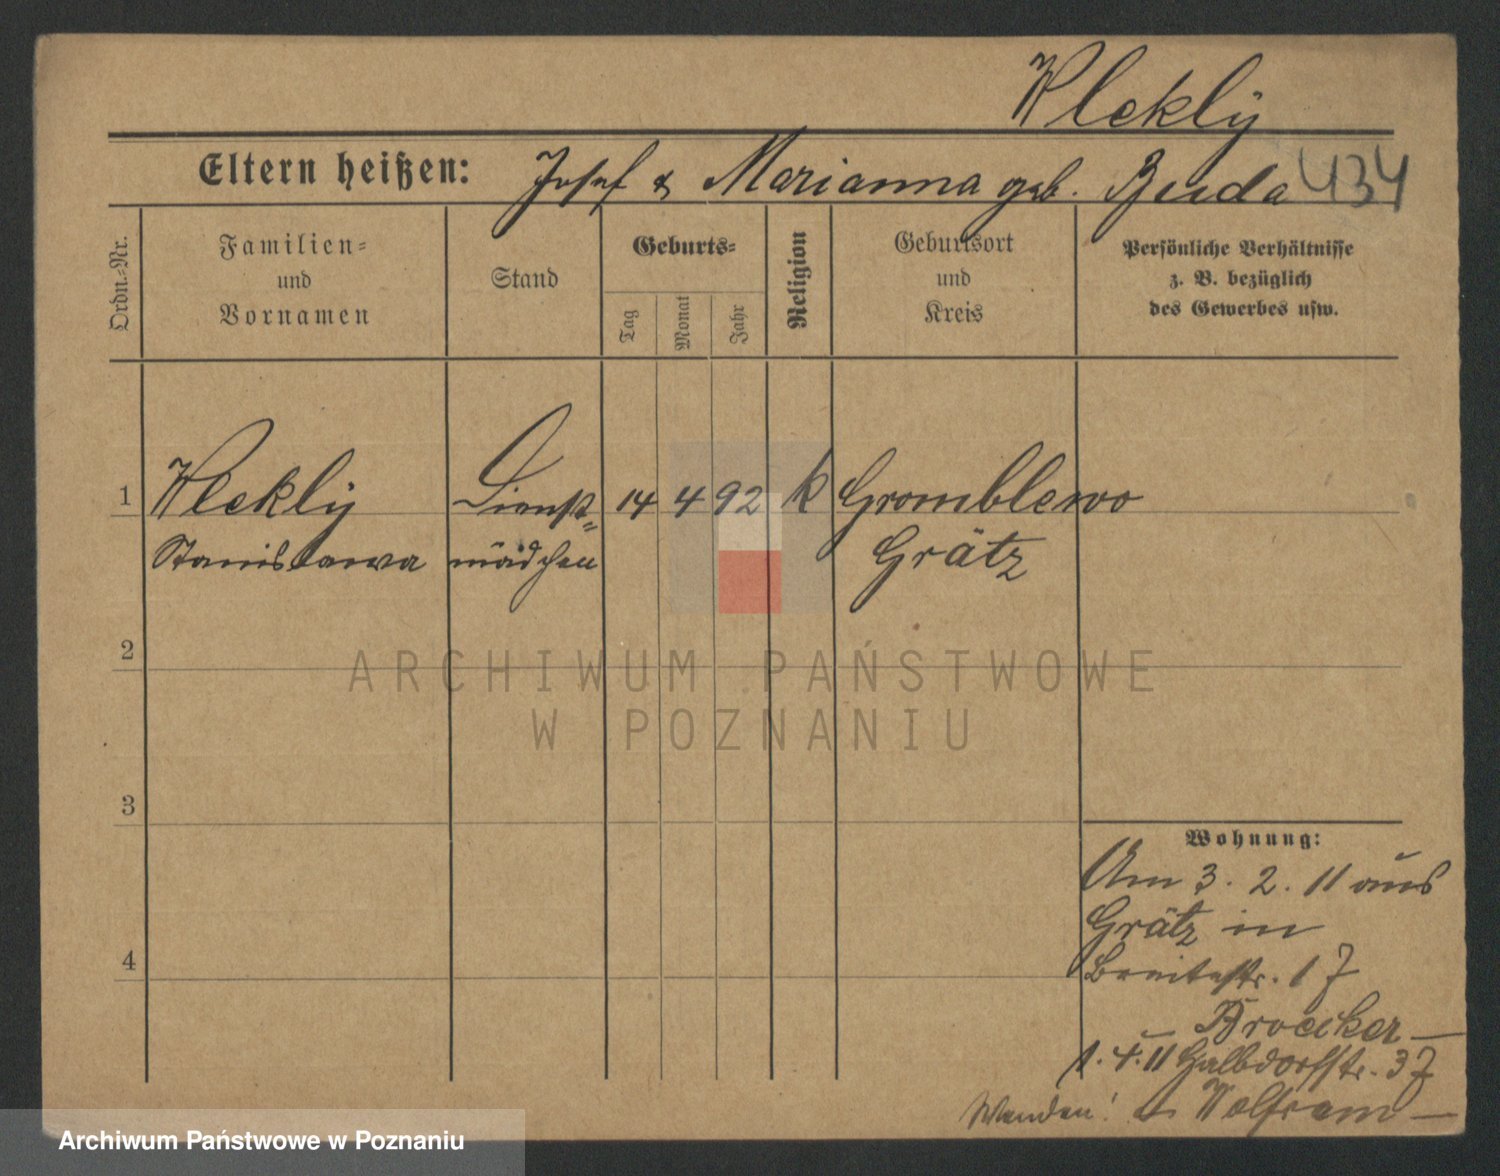 Wlekly
Eltern heißen: Josef & Marianna geb. Buda 434
Ordn.-Nr.
Familien-
und
Vornamen
Stand
Geburts-
Tag
Monat
Jahr
Religion
Geburtsort
und
Kreis
Persönliche Verhältnisse
z. B. bezüglich
des Gewerbes usw.
1 Wlekly Dienst- 14 4 92 k Gromblewo
Stanislawa mädchen Grätz
2
ARCHIWUM PAŃSTWOWE
W POZNANIU
3
Wohnung:
Am 3. 2. 11 aus
Grätz in
4
Breitestr. 17
Broecker
1. 4. 11 Halbdorfstr. 37
Wenden! Wolfram
Archiwum Państwowe w Poznaniu